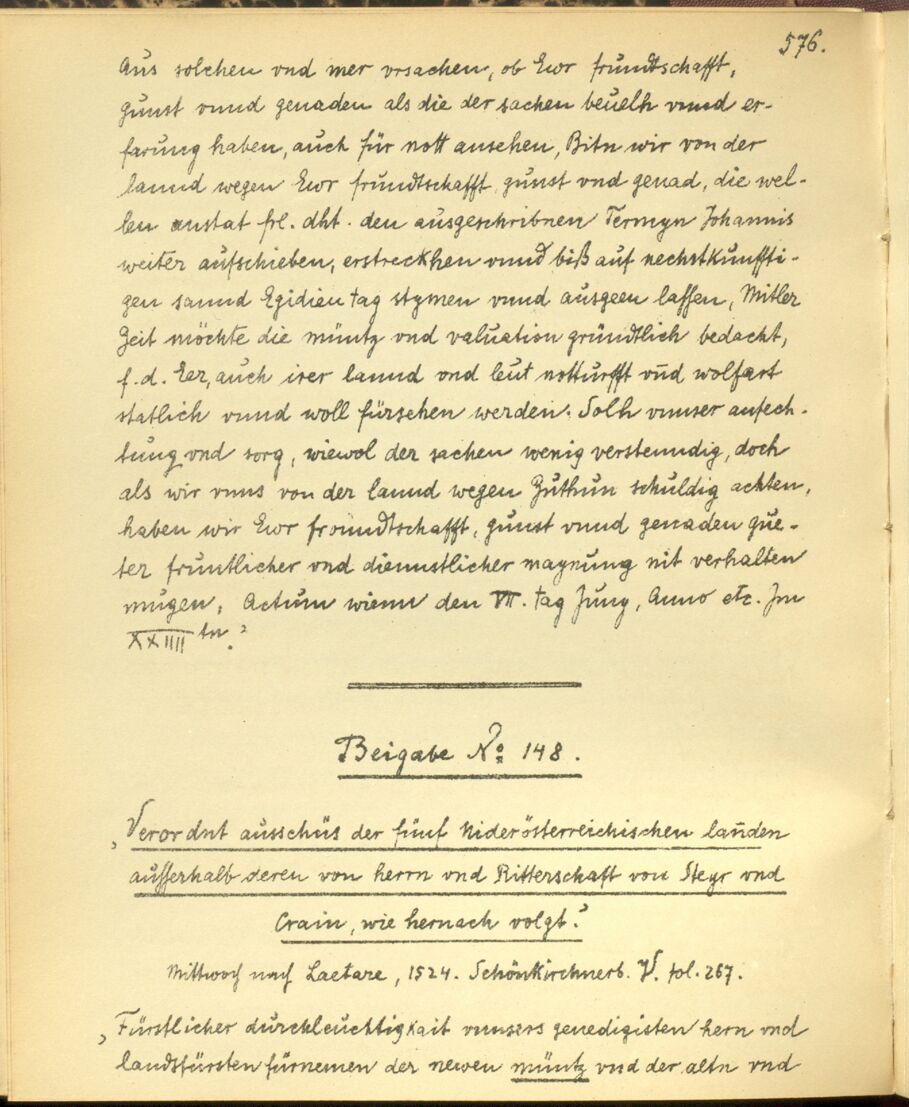 576.
Aus solchen vnd mer vrsachen, ob Ewr frundtschafft,
gunst vnnd genaden als die der sachen beuelh vnnd er-
farung haben, auch für nott ansehen, Bitn wir von der
lannd wegen Ewr frundtschafft, gunst vnd genad, die wel-
len anstat frl. dht. den ausgeschribnen Termyn Johannis
weiter aufschieben, erstreckhen vnnd biß auf nechstkunffti-
gen sannd Egidien tag stymen vnnd ausgeen lassen, Mitler
Zeit möchte die müntz vnd valuation gründtlich bedacht,
f. d. Eer, auch irer lannd vnd leut notturfft vnd wolfart
statlich vnnd woll fürsehen werden. Solh vnnser anfech-
tung vnd sorg, wiewol der sachen wenig verstenndig, doch
als wir vnns von der lannd wegen Zuthun schuldig achten,
haben wir Ewr froundtschafft, gunst vnnd genaden gue-
ter fruntlicher vnd diennstlicher maynung nit verhalten
mugen, Actum wienn den VII. tag Juny, Anno etc. Im
XXIIII tn.
Beigabe No 148.
„Verordnt ausschüs der fünf Niderösterreichischen landen
ausserhalb deren von herrn vnd Ritterschaft von Steyr vnd
Crain, wie hernach volgt.
Mittwoch nach Laetare, 1524. Schönkirchnerb. V. fol. 267.
„Fürstlicher durchleuchtigkait vnnsers genedigisten hern vnd
landsfürsten fürnemen der newen müntz vnd der altn vnd